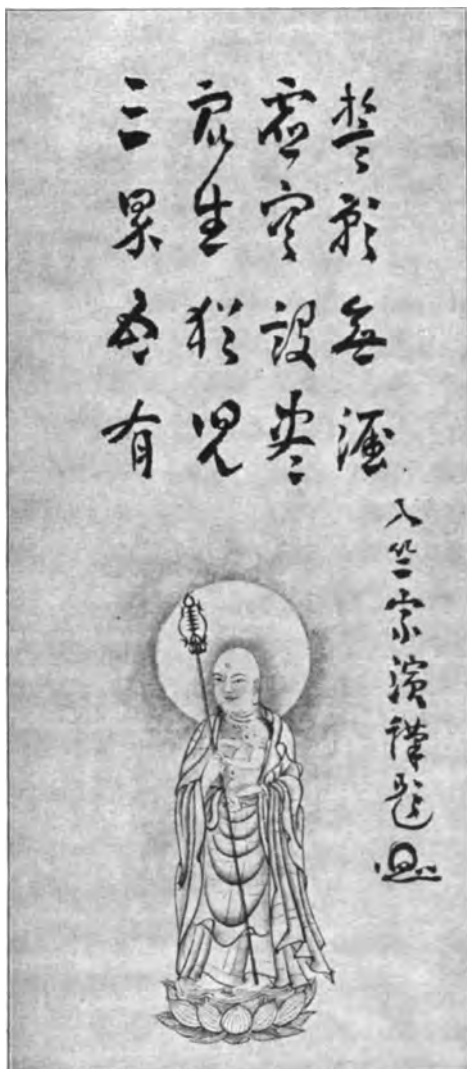 誓願無涯
虚空設尽
衆生猶児
三界吾有
入竺宗演謹題